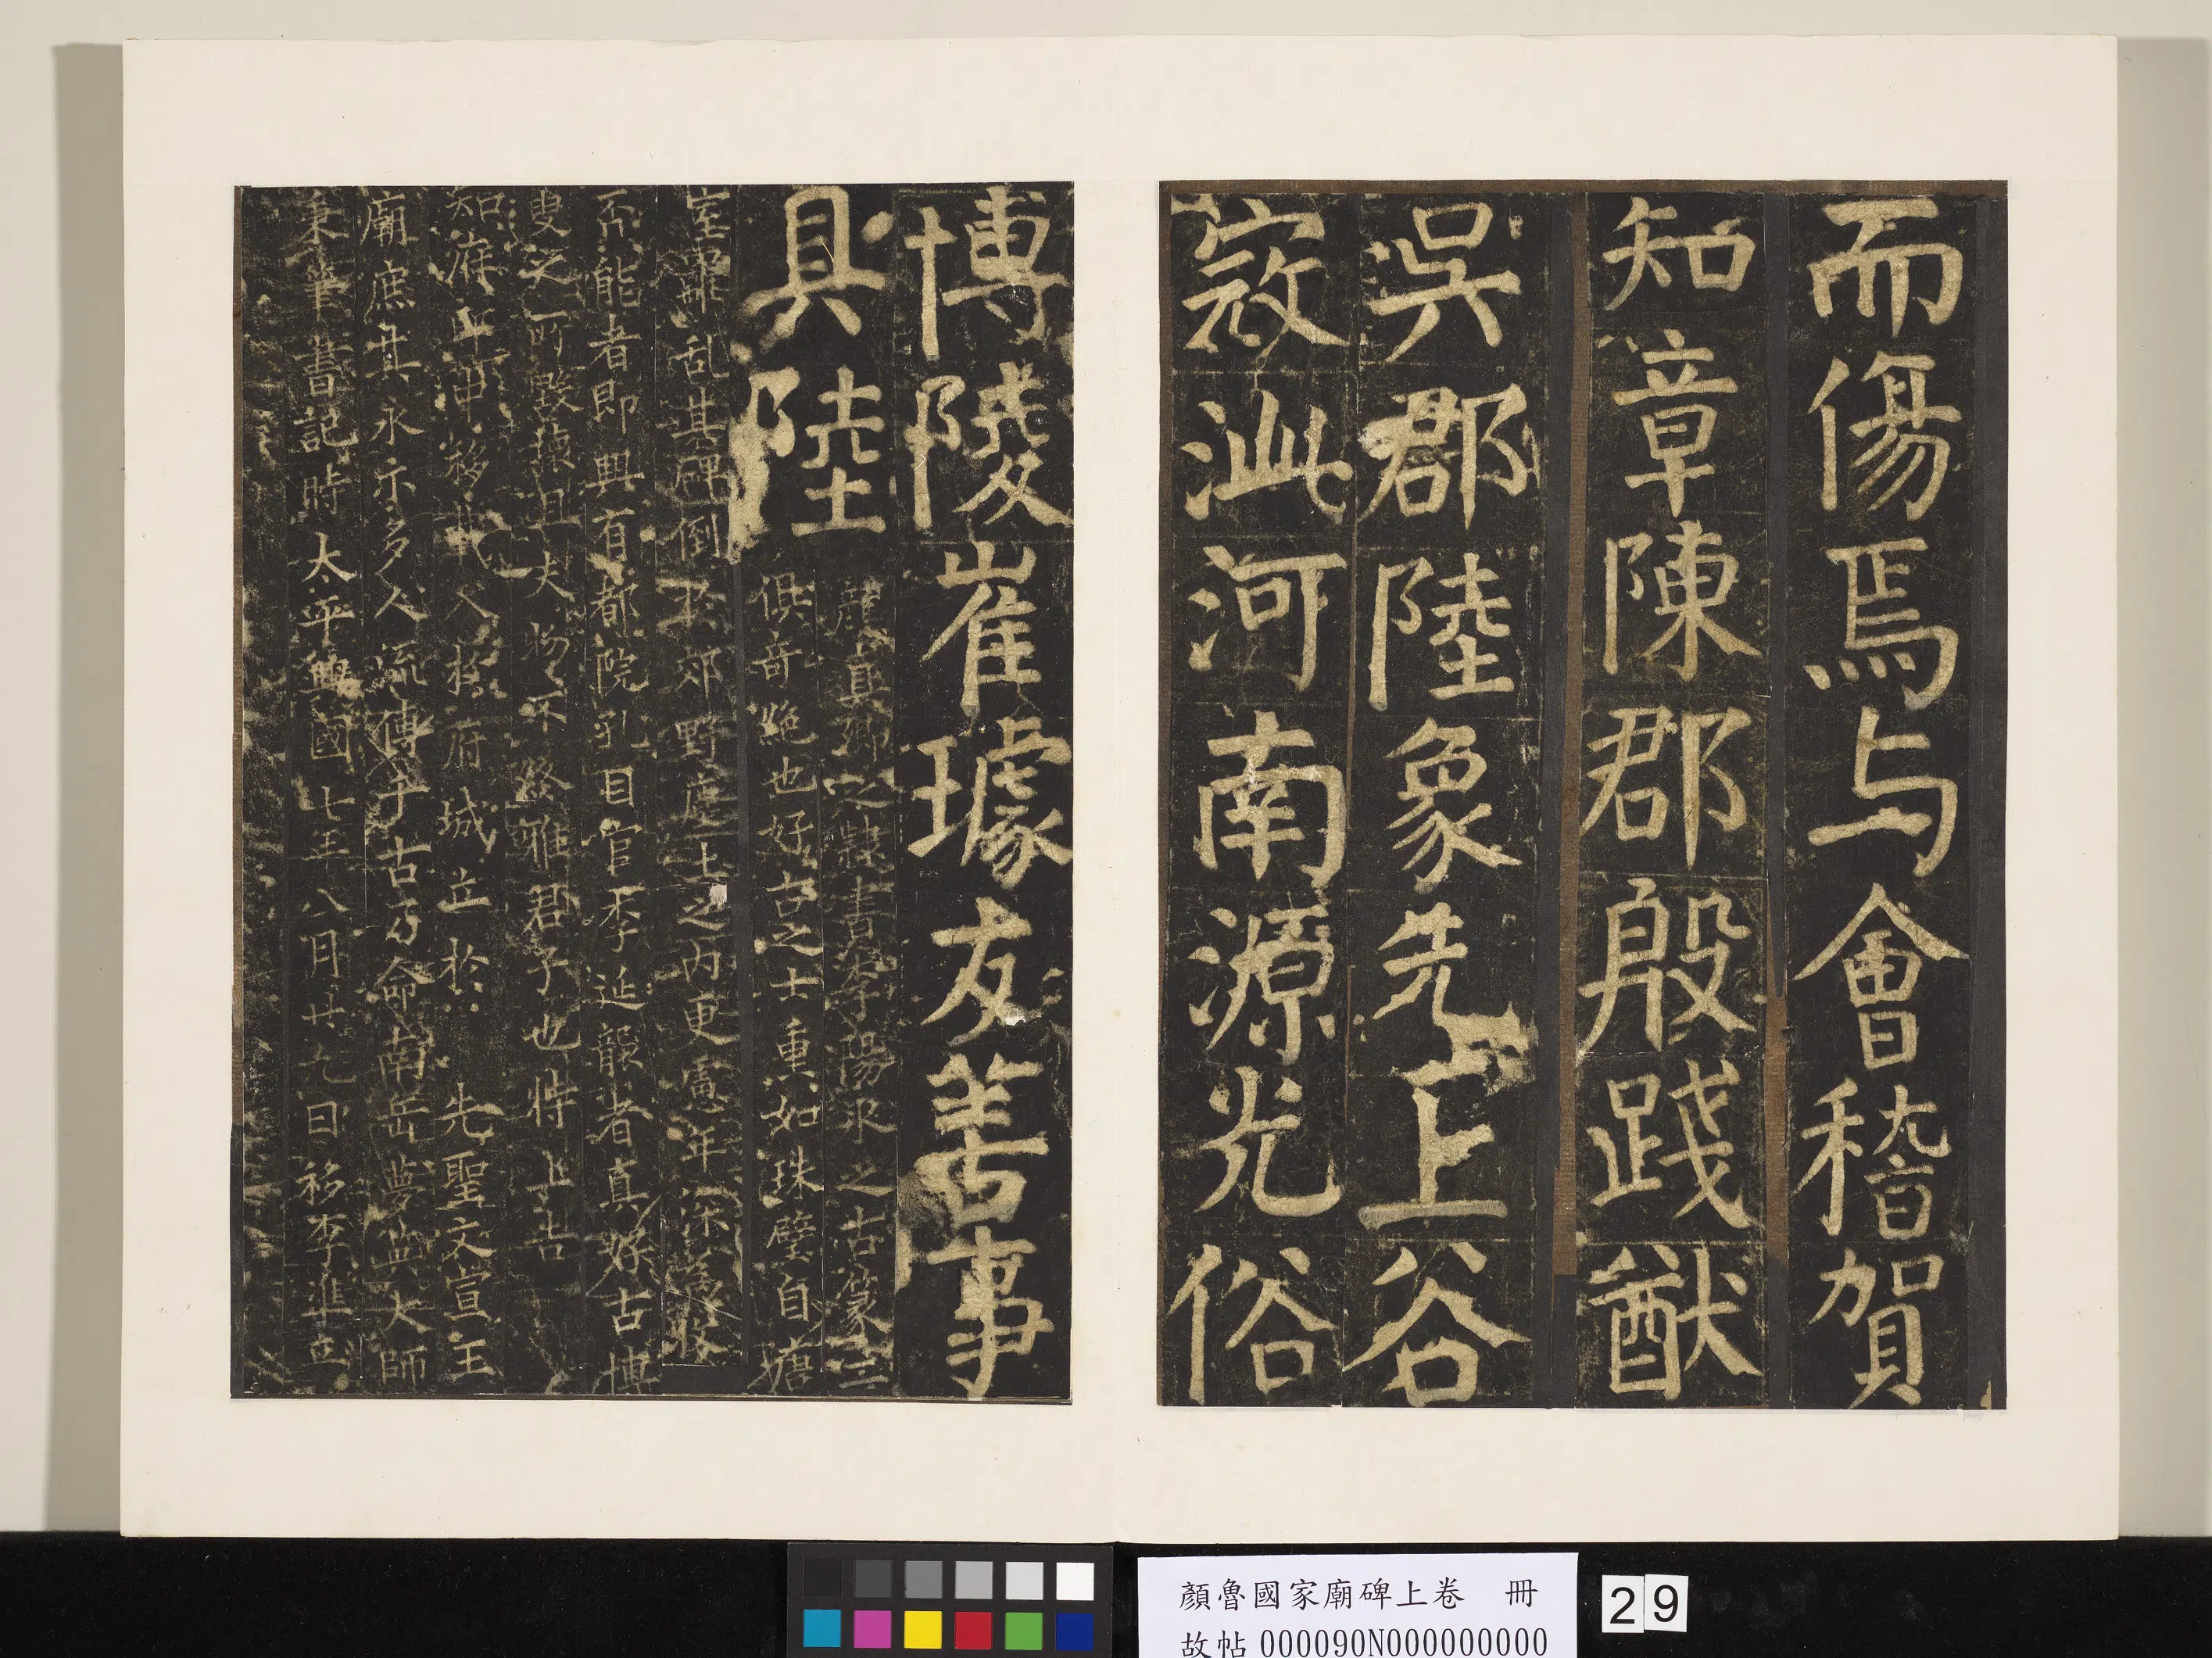 而傷焉与會稽賀
知章陳郡殷踐猷
吳郡陸象先上谷
寇泚河南源光俗
博陵崔璩友善事
具陸
顏真卿之隸書李陽冰之古篆二
俱奇絕也好古之士重如珠璧自唐
室離乱其碑倒於郊野塵土之內更慮年深為牧
否能者即興有都院孔目官李延襲者真好古博
叟之所毀壞且夫物不終雅君子也特上告
知府郎中移載入於府城立於先聖文宣王
廟庶其永示多人流傳千古乃命南岳夢英大師
秉筆書記時太平興國七年八月廿九日移李準立
顏魯國家廟碑上卷 冊
故帖000090N000000000
29